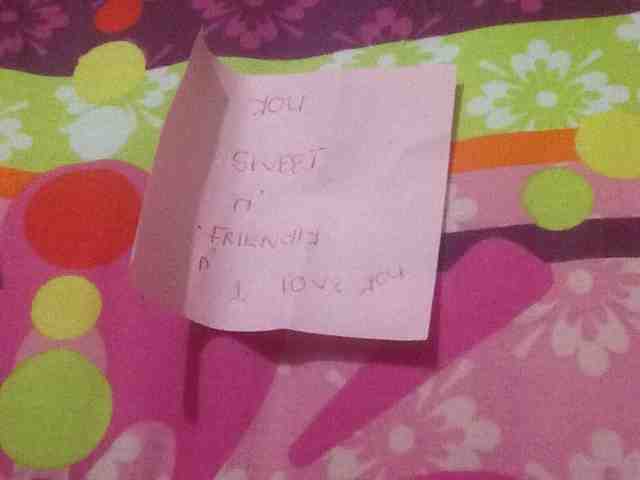 YOU
SWEET
N'
'FRIENDLY
N'
I LOVE YOU